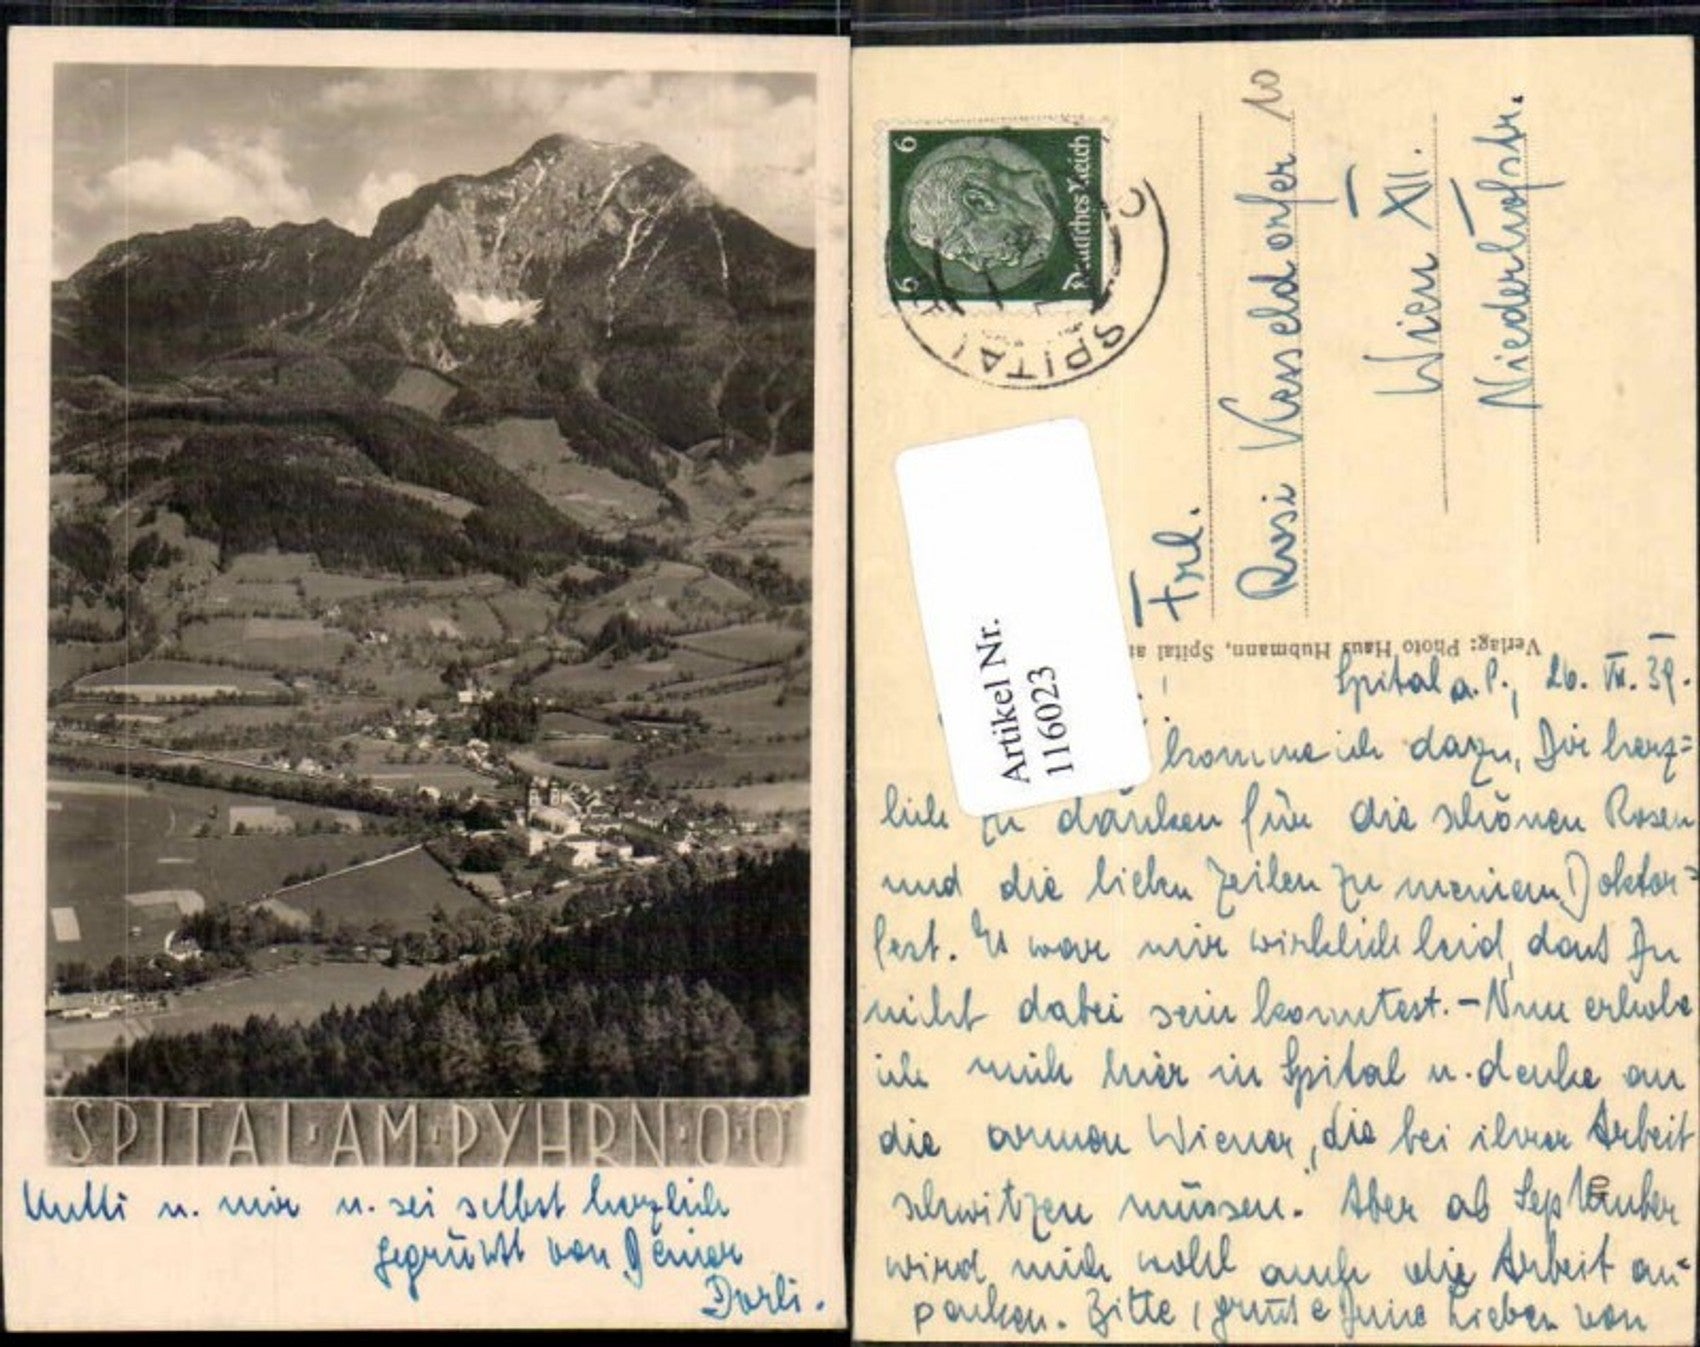 SPITAL·AM·PYHRN·O·Ö
Mutti u. mir u. sei selbst herzlich
gegrüßt von Deiner
Dorli.
6
6
Deutsches Reich
SPITAL
Frl.
Rosi
10
Wien XII.
Niederhofstr.
Artikel Nr.
116023
Verlag: Photo Haus Hubmann, Spital a
Spital a. P., 26. VII. 39.
komme ich dazu, Dir herz=
lich zu danken für die schönen Rosen
und die lieben Zeilen zu meinem Doktor=
fest. Es war mir wirklich leid, daß Du
nicht dabei sein konntest. – Nun erhole
ich mich hier in Spital u. denke an
die armen Wiener, die bei ihrer Arbeit
schwitzen müssen. Aber ab September
wird mich wohl auch die Arbeit an=
packen. Bitte, grüße Deine Lieben von